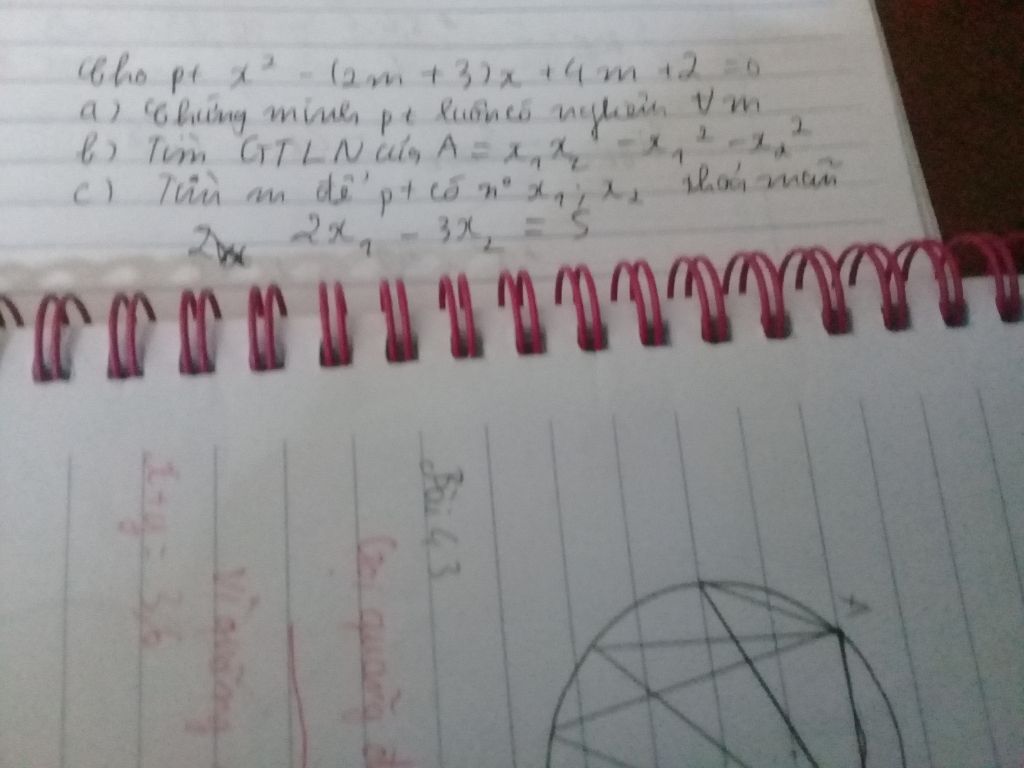 Cho pt x² - (2m + 3)x + 4m + 2 = 0
a) Chứng minh pt luôn có nghiệm ∀ m
b) Tìm GTLN của A = x₁x₂ - x₁² - x₂²
c) Tìm m để pt có n⁰ x₁; x₂ thoả mãn
2x₁ - 3x₂ = 5
Bài 43
Gọi quãng đ
Vì quãng
x + y = 36
A